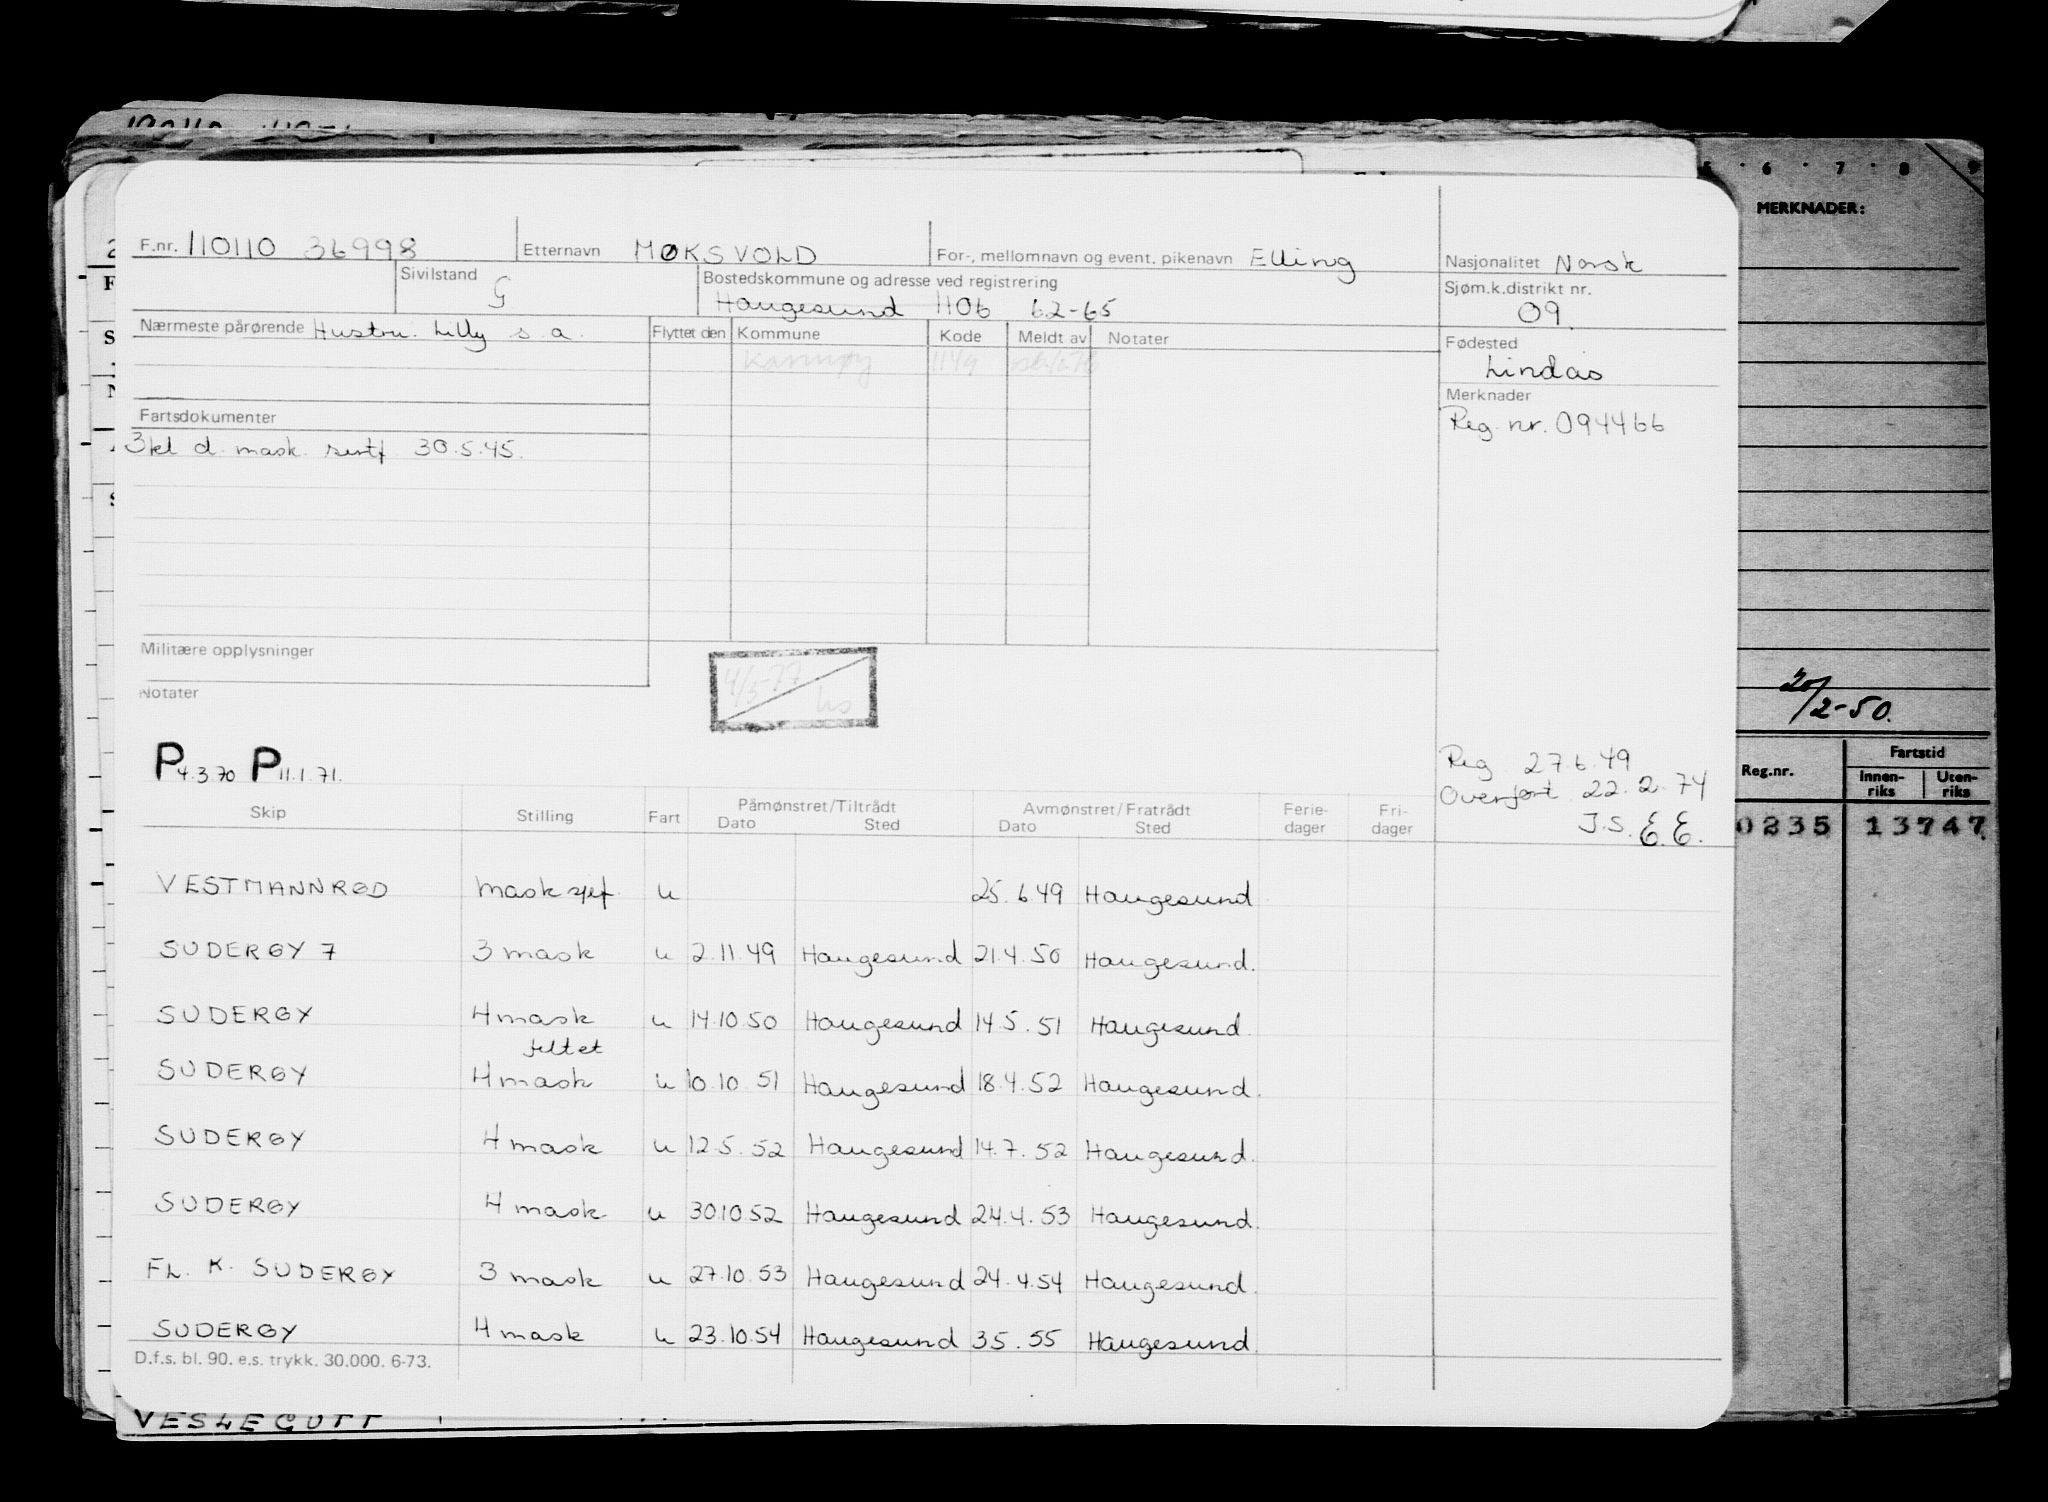 5 · 6 · 7 · 8 · 9
MERKNADER:
F.nr. 110110 36998 Etternavn MØKSVOLD For-, mellomnavn og event. pikenavn Elling Nasjonalitet Norsk
Sivilstand G Bostedskommune og adresse ved registrering Sjøm.k.distrikt nr.
Haugesund 1106 62-65 09.
Nærmeste pårørende Hustru: Lilly s. a. Flyttet den Kommune Kode Meldt av Notater Fødested
Karmøy 1149 Lindås
Merknader
Fartsdokumenter Reg. nr. 094466
3kl d. mask. sertf. 30.5.45.
Militære opplysninger
4/5-77
Notater
20/2-50.
P4.3.70 P11.1.71. Reg. 27.6.49
Overført 22.2.74
J.S. E.E.
Reg.nr. Fartstid
Innen-riks Uten-riks
0235 13747
Skip Stilling Fart Påmønstret/Tiltrådt Avmønstret/Fratrådt Ferie-dager Fri-dager
Dato Sted Dato Sted
VESTMANNRØD mask sjef. u 25.6.49 Haugesund
SUDERØY 7 3 mask u 2.11.49 Haugesund 21.4.50 Haugesund.
SUDERØY 4 mask u 14.10.50 Haugesund 14.5.51 Haugesund
feltet
SUDERØY 4 mask u 10.10.51 Haugesund 18.4.52 Haugesund.
SUDERØY 4 mask u 12.5.52 Haugesund 14.7.52 Haugesund.
SUDERØY 4 mask u 30.10.52 Haugesund 24.4.53 Haugesund.
FL. K. SUDERØY 3 mask u 27.10.53 Haugesund 24.4.54 Haugesund.
SUDERØY 4 mask u 23.10.54 Haugesund 3.5.55 Haugesund.
D.f.s. bl. 90. e.s. trykk. 30.000. 6-73.
VESLEGUTT